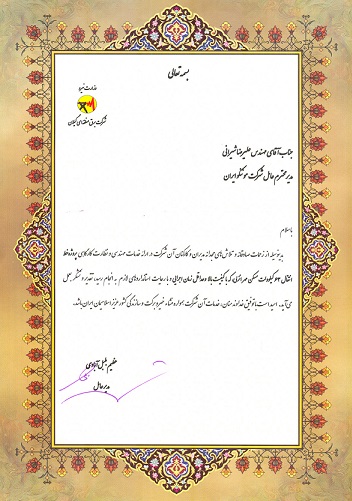 بسمه تعالی
وزارت نیرو
شرکت برق منطقه‌ای گیلان
جناب آقای مهندس علیرضا شیرانی
مدیر محترم عامل شرکت مونکو ایران
با سلام
بدینوسیله از زحمات صادقانه و تلاش‌های مجدانه مدیران و کارکنان آن شرکت در ارائه خدمات مهندسی و نظارت کارگاهی پروژه خط
انتقال ۶۳ کیلوولت که با کیفیت بالا و حداقل زمان اجرایی و با رعایت استانداردهای لازم به انجام رسید، تقدیر و تشکر بعمل
می‌آید. امید است با توفیق خداوند منان، خدمات آن شرکت همواره منشاء خیر و برکت و سازندگی کشور عزیز اسلامیمان ایران باشد.
مدیر عامل